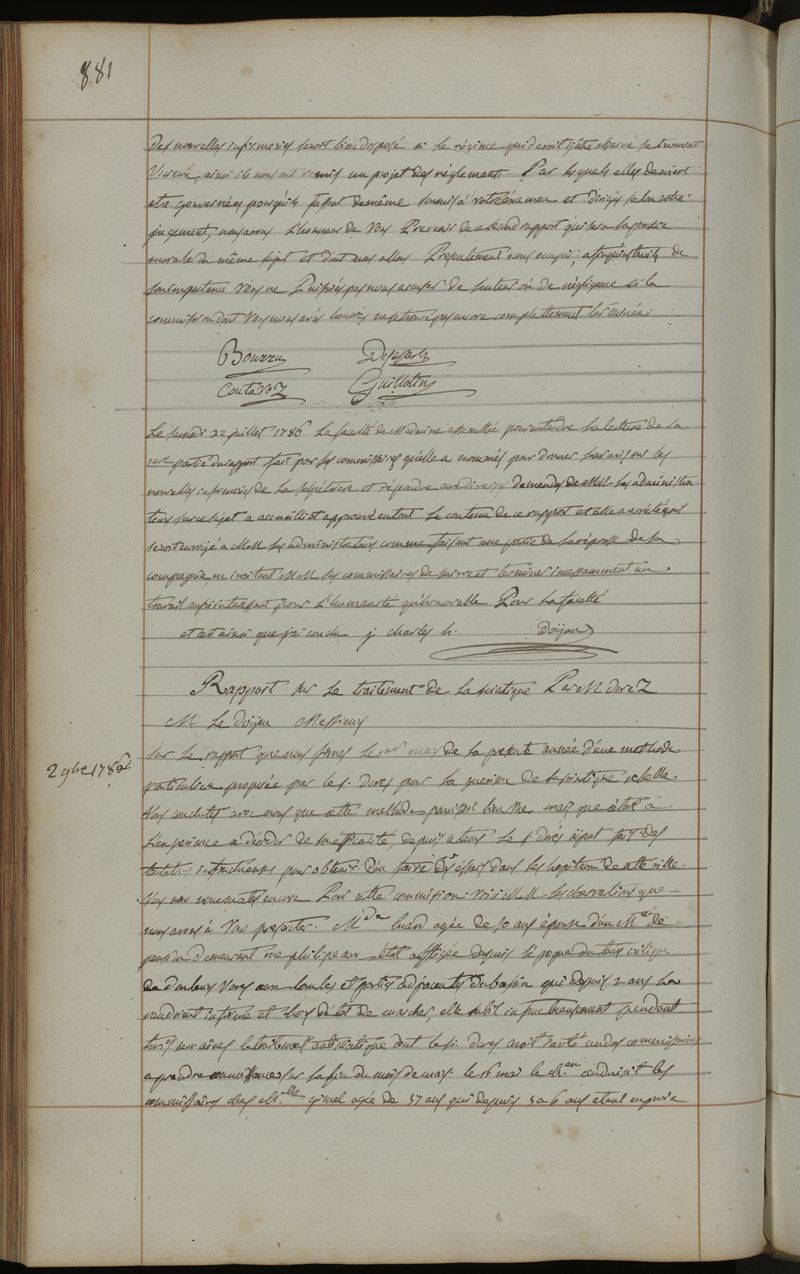 881
des nouvelles infirmeries seroit bien disposé si le régime qui devoit y être observé se trouvoit
Vicieux, ainsi ils nous ont remis un projet des réglements Par lesquels elles devoient
etre gouvernées pour qu'ils fussent de même soumis à votre examen et dirigés selon votre
jugement, nous avons L'honneur de Vous Prevenir de ce second rapport qui sera la partie
morale du même sujet et dont nous allons nous occuper, afin qu'instruits de
son importance Vous ne Puissiés pas nous accuser de lenteur ou de négligence si la
commission dont Vous nous avés honorés n'est pas encore complettement terminée.
Bourru Dessessartz
Coutavoz Guillotin
Le Samedi 22 juillet 1786 La faculté de Medecine assemblée pour entendre la lecture de la
1ere partie du rapport fait par les commissaires qu'elle a nommés pour donner son avis sur les
nouvelles infirmeries de la Salpétriere et répondre aux diverses demandes de MM les administra
teurs sur ce sujet a accueilli et approuvé en tout le contenu de ce rapport et elle a arrêté qu'il
seroit envoyé a MM les administrateurs comme faisant une partie de la réponse de la
compagnie en invitant MM les commissaires de suivre et terminer incessamment un
travail aussi interessant pour L'humanité qu'honorable Pour La faculté
et c'est ainsi que j'ai conclu j charles h. Doijen
Rapport sur Le traitement de La sciatique Par M Dorez
M. Le Doijen Messieurs
2 9bre 1786
sur le rapport que nous fimes le mars de la presente année d'une methode
curative proposée par le s. Dorez pour la guerison de la sciatique rebelle
Vous conclutes avec nous que cette methode paroissoit bien mais que c'étoit à
L'experience a décider de son éfficacité, depuis ce tems le s. Dorés aijant fait des
tentatives infructueuses pour obtenir d'en faire des essais dans les hopitaux de cette ville
Vous nous encore Pour cette commission. Voici MM les observations que
nous avons à Vous presenter. Mde huard agée de 50 ans épouse d'un Me de
pension demeurant rue phelipeaux étoit affligée depuis l'epoque du tems critique
de douleurs Vives aux lombes et parties adjacentes du bassin qui depuis 2 ans la
rendoient infirme et hors d'état de marcher, elle subit infructueusement pendant
trois semaines le traitement antisciatique dont le s. dorez avoit invité un des commissaires
a prendre connoissance sur la fin du mois de mars. le 16 mai le Chien conduisit les
commissaires chez Mlle gimel agée de 57 ans qui depuis 5 a 6 ans etoit en proie